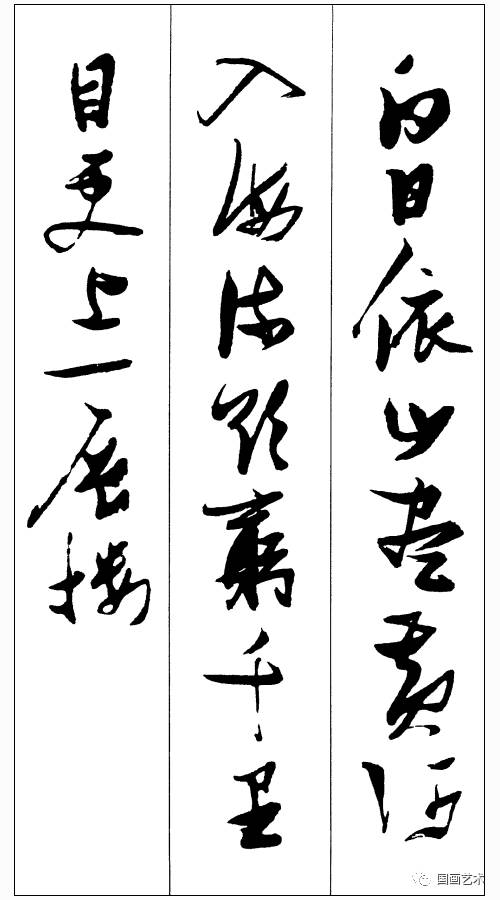 白日依山盡黄河
入海流欲窮千里
目更上一层楼
国画艺术